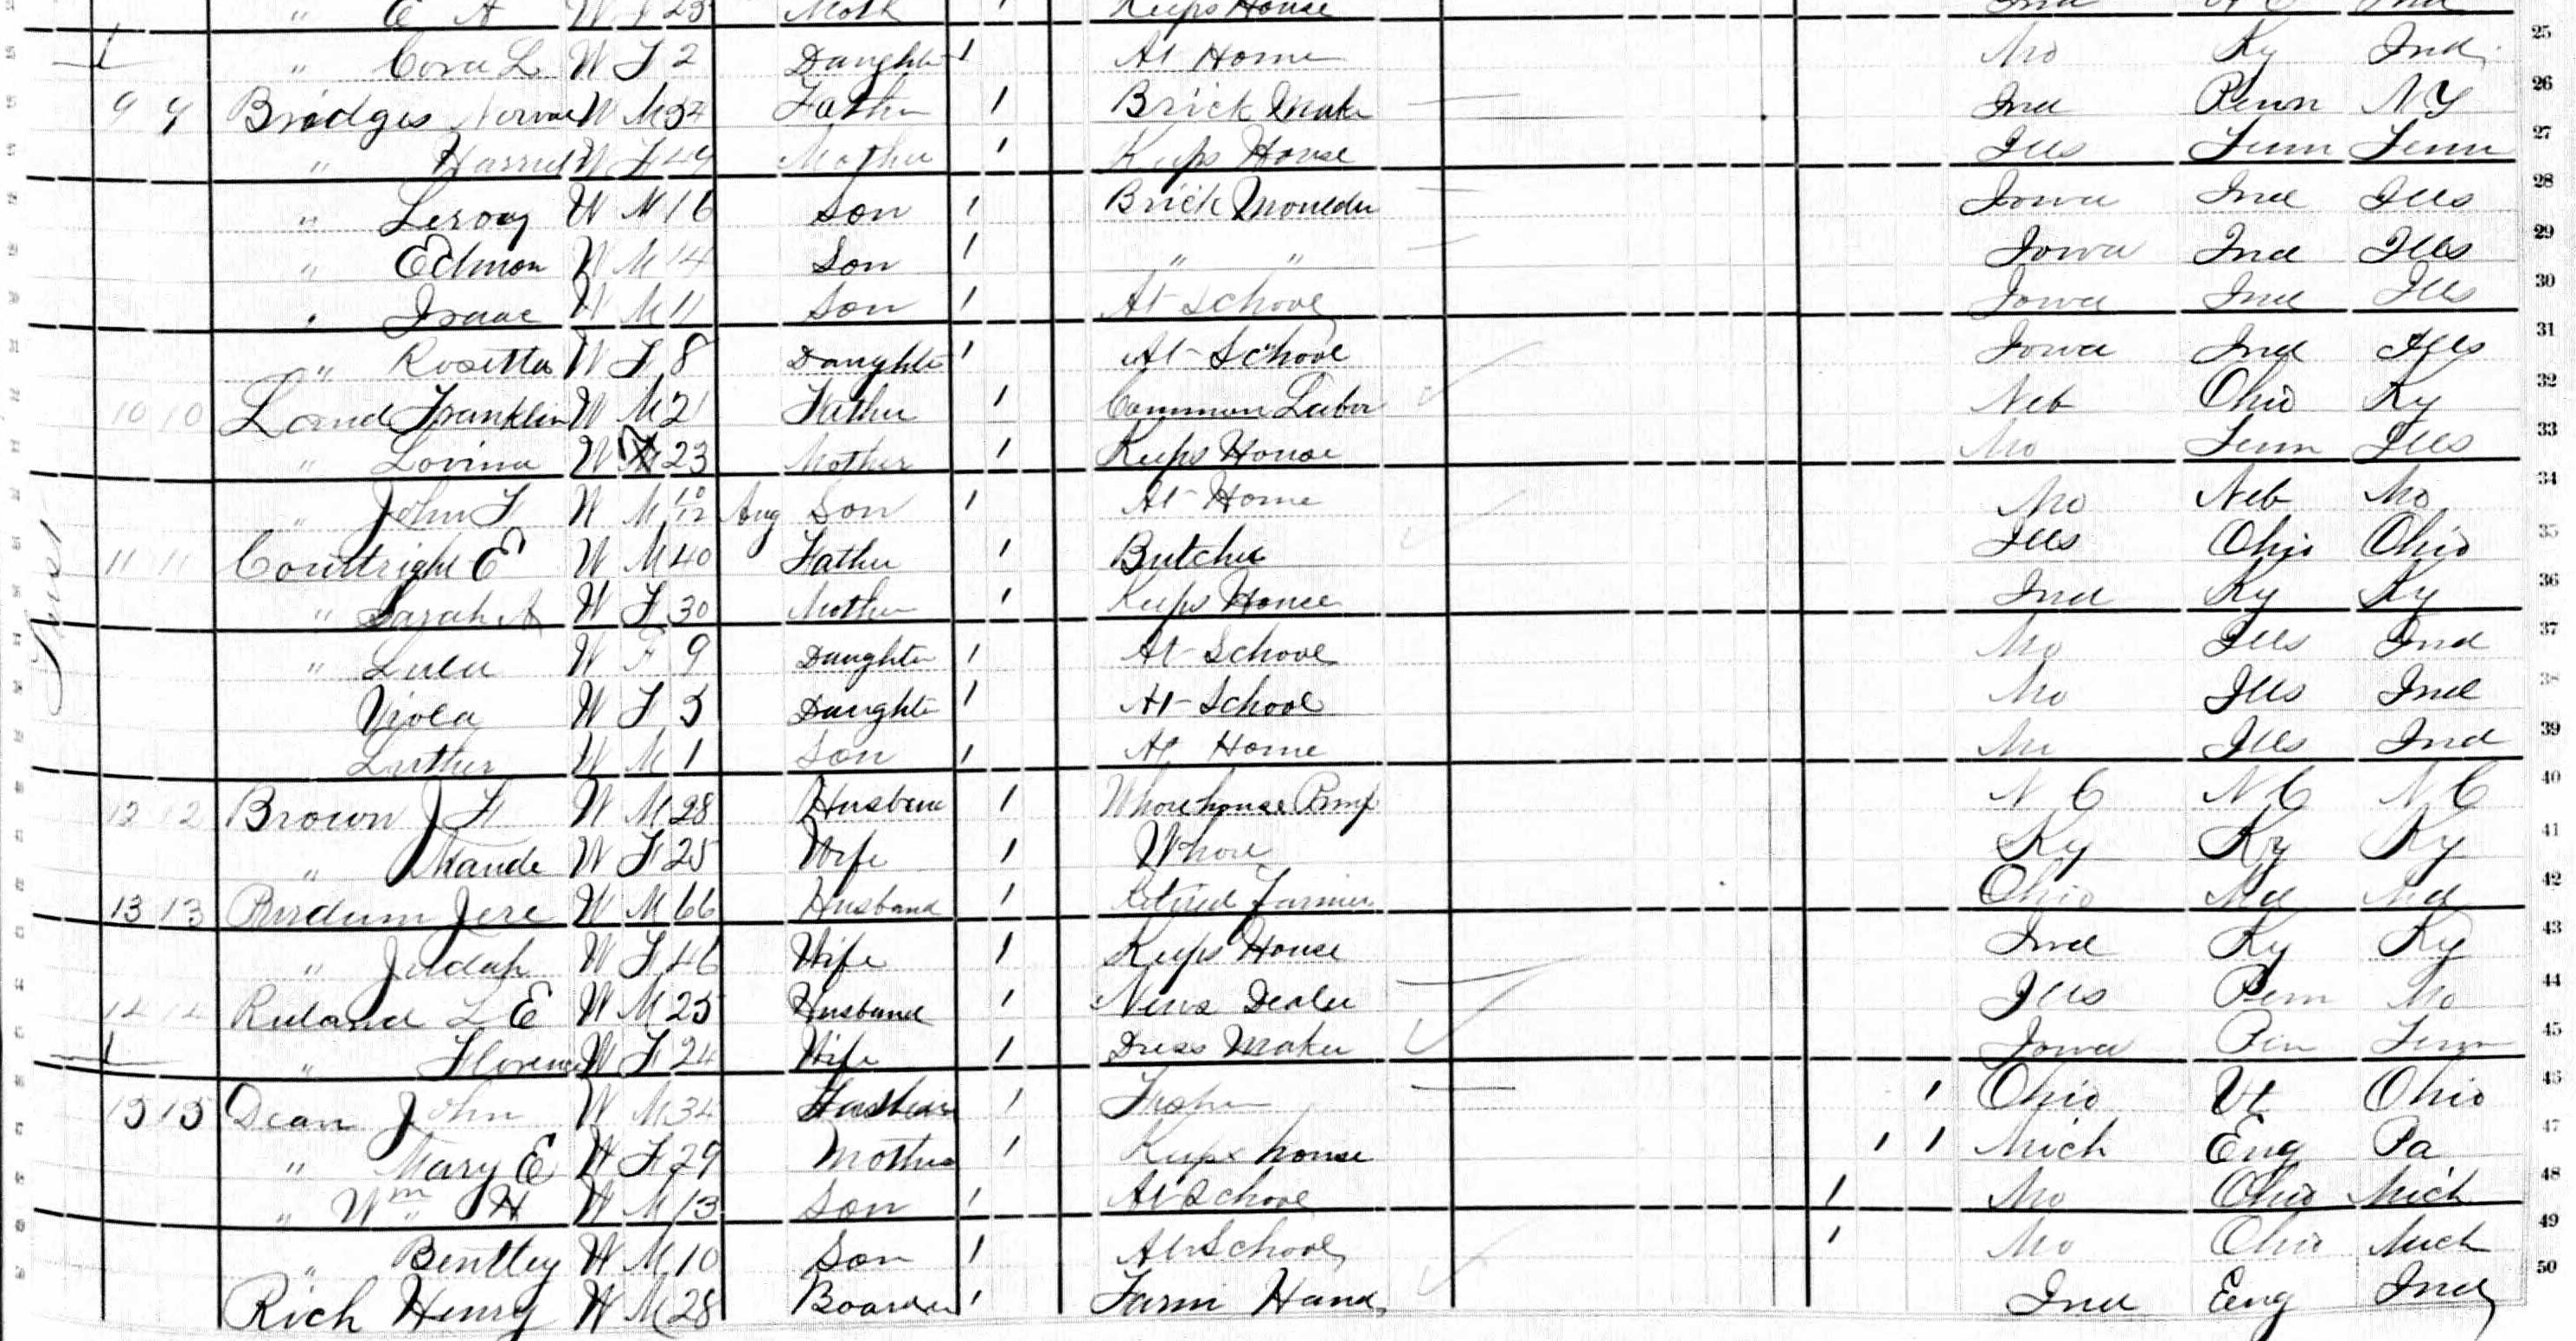 " E A W F 23 Moth / Keeps House Ind N C Ind
" Cora L W F 2 Daughter / At Home Mo Ky Ind 25
9 9 Bridges W M 54 Father / Brick Maker Ind Penn N Y 26
" Harriet W F 49 Mother / Keeps House Ills Tenn Tenn 27
" Leroy W M 16 Son / Brick Moulder Iowa Ind Ills 28
" Edmon W M 14 Son / " " Iowa Ind Ills 29
" Isaac W M 11 Son / At School Iowa Ind Ills 30
" Rosetta W F 8 Daughter / At School Iowa Ind Ills 31
10 10 Land Franklin W M 21 Father / Common Labor Neb Ohio Ky 32
" Lovina W F 23 Mother / Keeps House Mo Tenn Ills 33
" John F W M 10/12 Aug Son / At Home Mo Neb Mo 34
11 11 Courtright E W M 40 Father / Butcher Ills Ohio Ohio 35
" Sarah A W F 30 Mother / Keeps House Ind Ky Ky 36
" Lulu W F 9 Daughter / At School Mo Ills Ind 37
Viola W F 5 Daughter / At School Mo Ills Ind 38
Luther W M 1 Son / At Home Mo Ills Ind 39
12 12 Brown J F W M 28 Husband / Whorehouse Pimp N C N C N C 40
" Maude W F 25 Wife / Whore Ky Ky Ky 41
13 13 Purdum Jere W M 66 Husband / Retired Farmer Ohio Md Md 42
" Judah W F 46 Wife / Keeps House Ind Ky Ky 43
14 14 Ruland L E W M 25 Husband / News Dealer Ills Penn Mo 44
" Florence W F 24 Wife / Dress Maker Iowa Tenn 45
15 15 Dean John W M 34 Husband / / Ohio Vt Ohio 46
" Mary E W F 29 Mother / Keeps house / / Mich Eng Pa 47
" Wm H W M 13 Son / At School / Mo Ohio Mich 48
" Bentley W M 10 Son / At School / Mo Ohio Mich 49
Rich Henry W M 28 Boarder / Farm Hand Ind Eng Ind 50